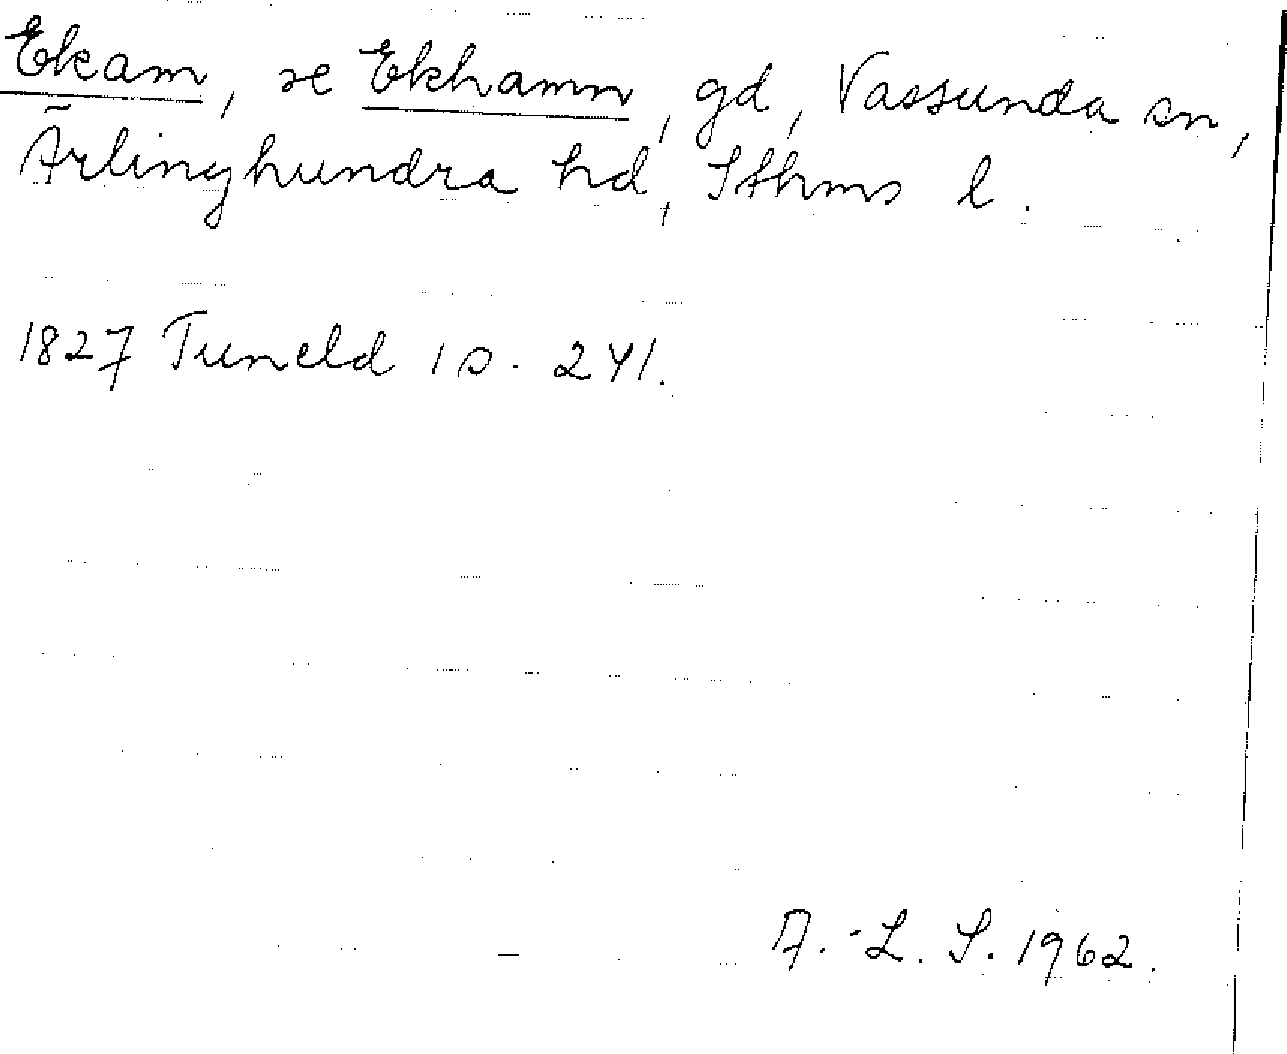 Ekam, se Ekhamn, gd, Vassunda sn,
Ärlinghundra hd, Sthms l.
1827 Tuneld 1 s. 241.
A.-L. S. 1962.